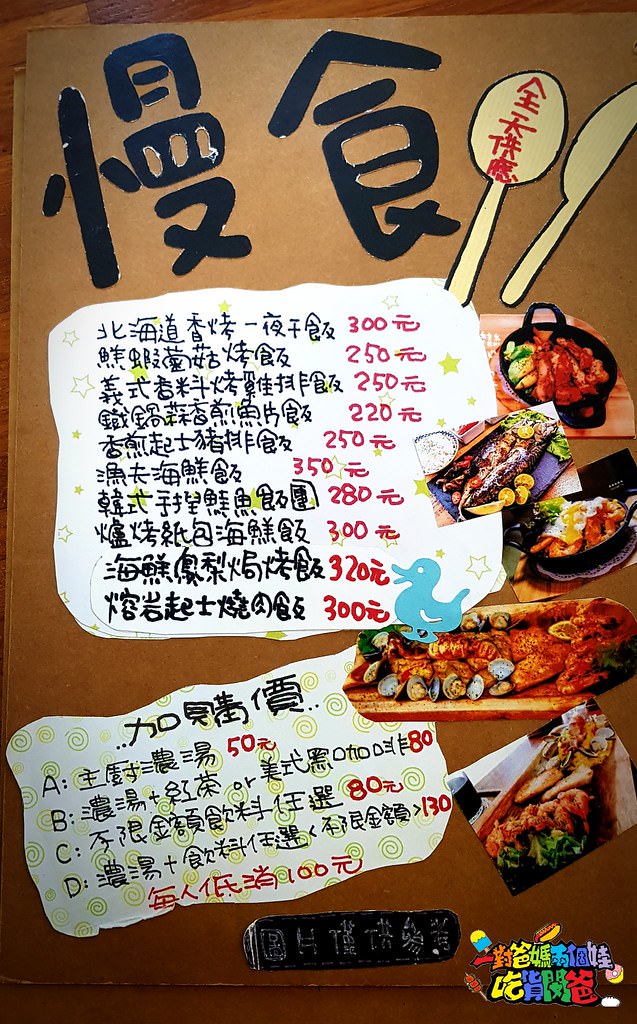 慢食
全天供應
北海道香烤一夜干飯 300元
鮮蝦蘑菇烤飯 250元
義式香料烤雞排飯 250元
鐵鍋蒜香煎魚片飯 220元
香煎起士豬排飯 250元
漁夫海鮮飯 350元
韓式手捏鮭魚飯糰 280元
爐烤紙包海鮮飯 300元
海鮮鳳梨焗烤飯 320元
熔岩起士燒肉飯 300元
..加購價..
A: 主廚濃湯 50元
B: 濃湯+紅茶 or 美式黑咖啡 80
C: 不限金額飲料任選 80元
D: 濃湯+飲料任選<不限金額>130
每人低消100元
圖片僅供參考
一對爸媽兩個娃
吃貨閃爸